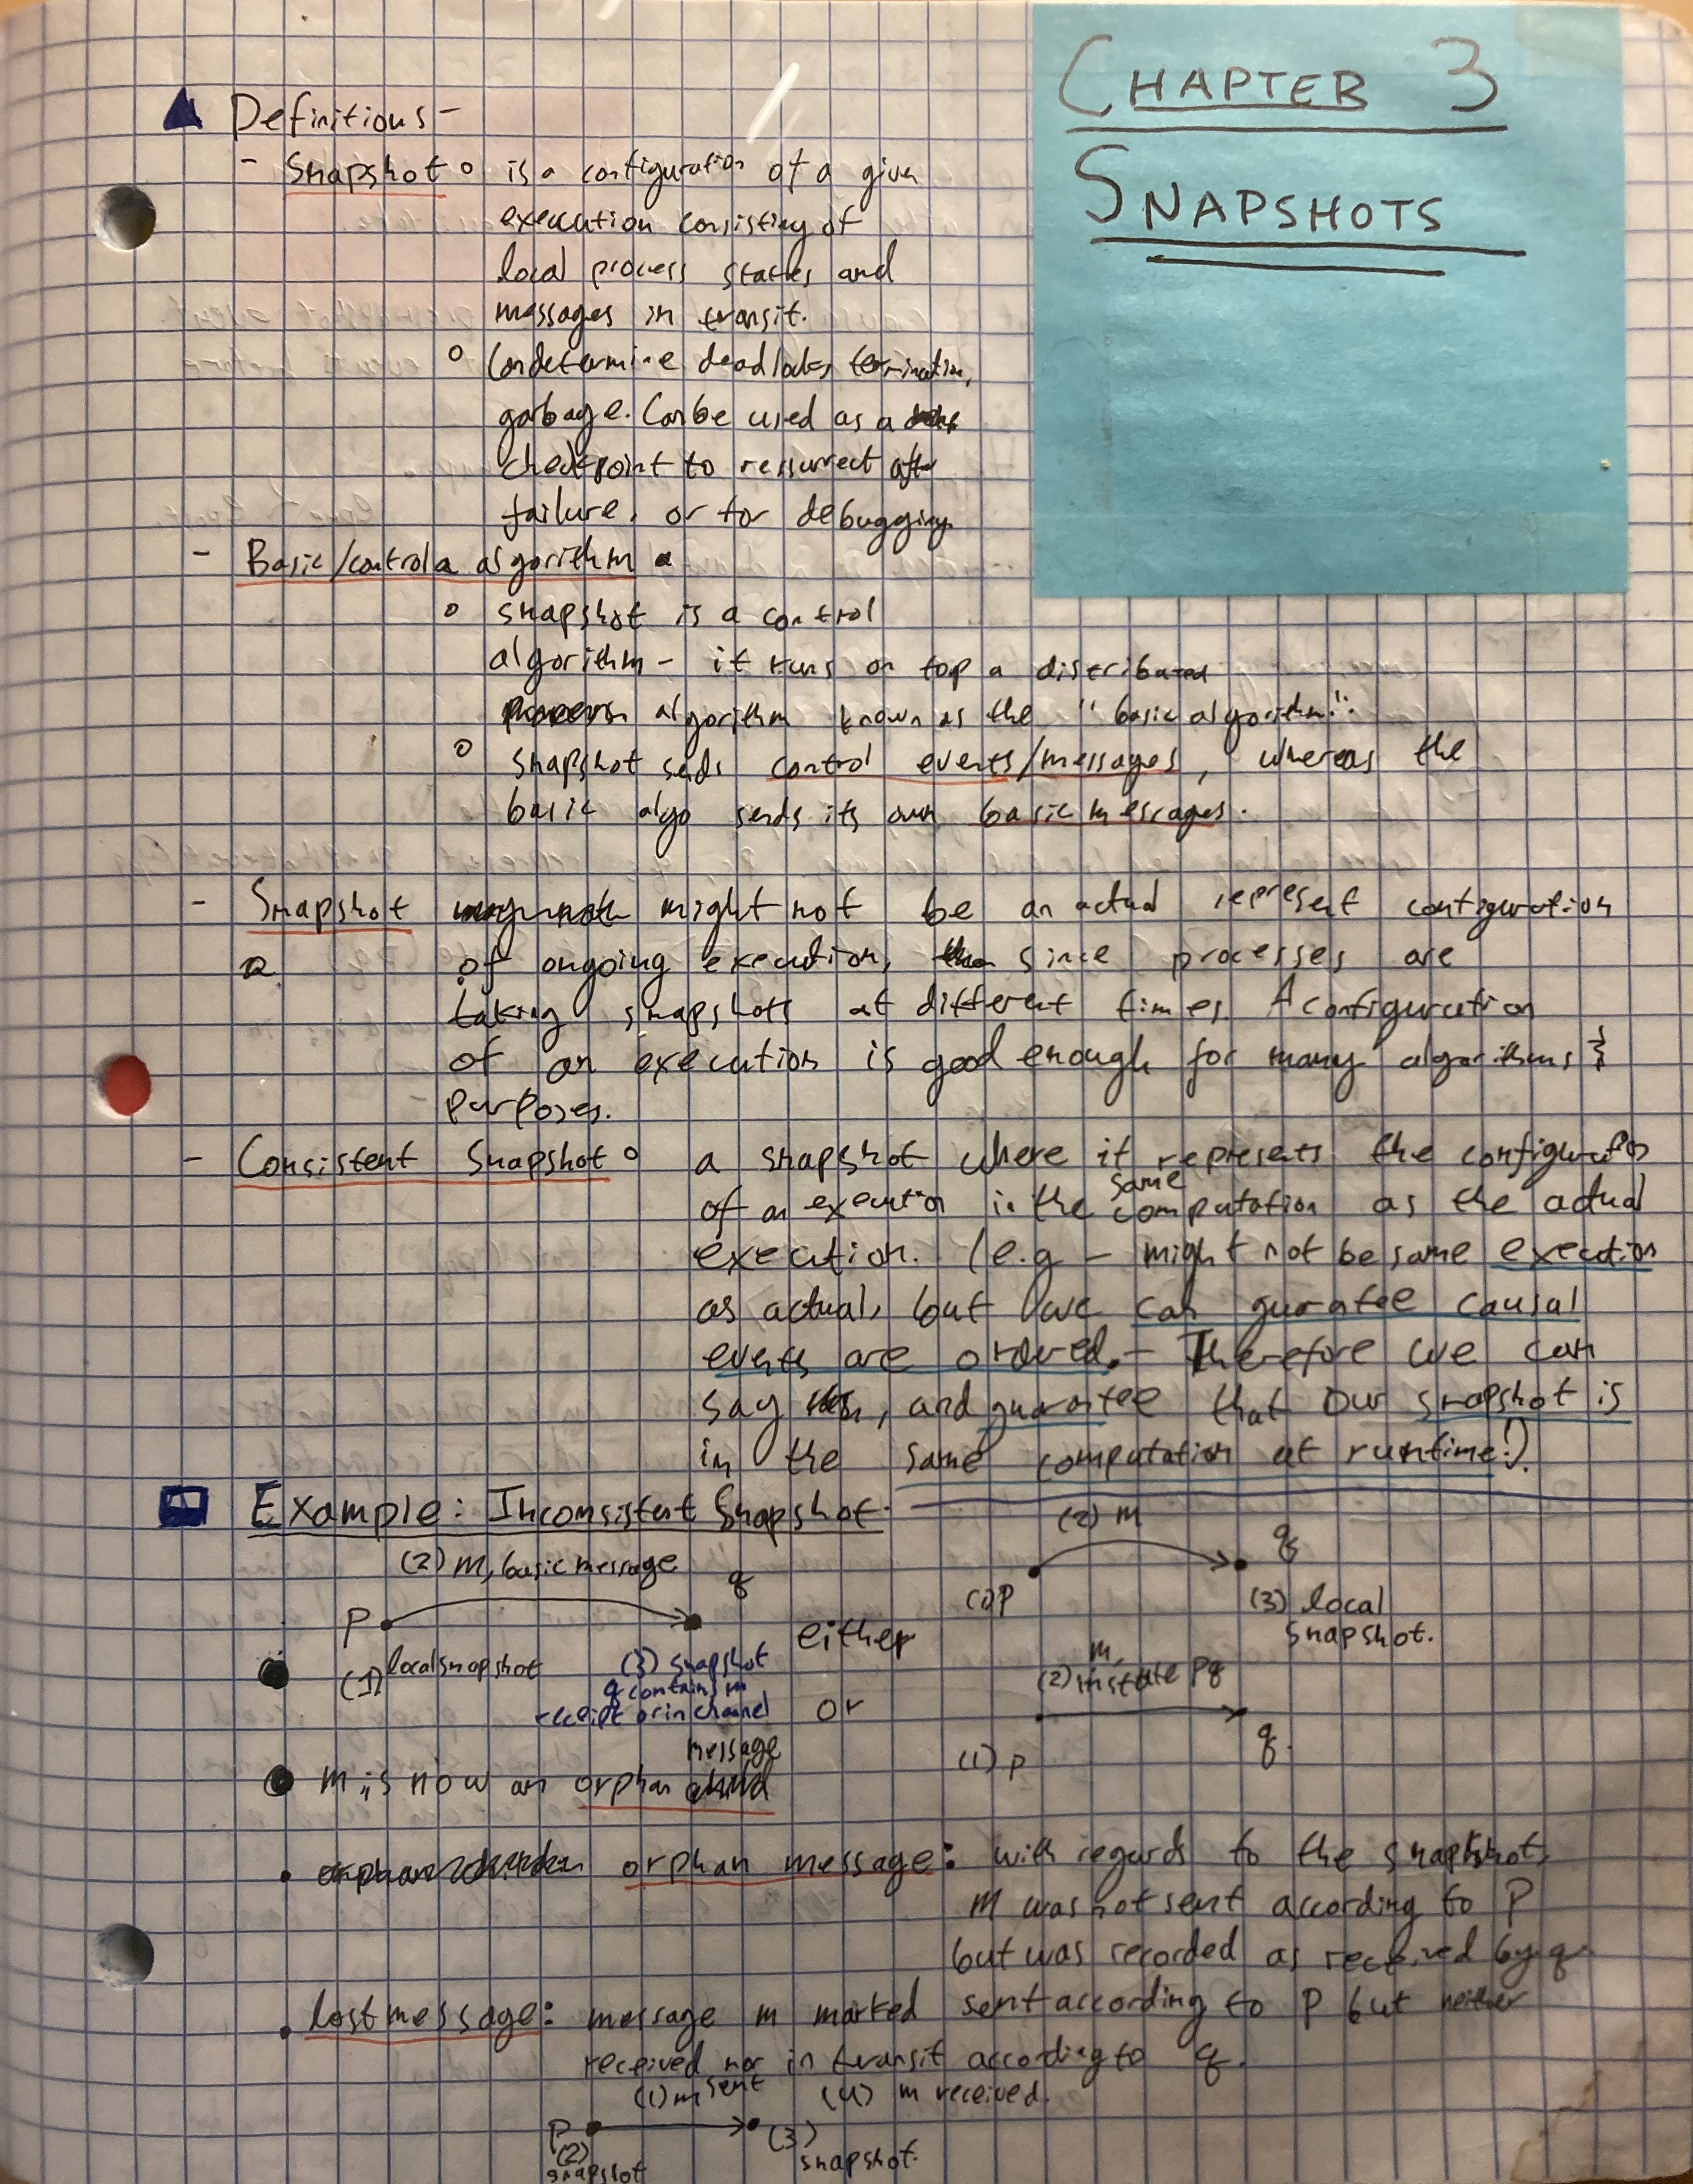 CHAPTER 3
SNAPSHOTS
Definitions -
- Snapshot o is a configuration of a given
execution consisting of
local process states and
messages in transit.
o Can determine deadlocks, termination,
garbage. Can be used as a
checkpoint to ressurect after
failure, or for debugging
- Basic/control algorithm
o snapshot is a control
algorithm - it runs on top a distributed
algorithm known as the "basic algorithm".
o snapshot sends control events/messages, whereas the
basic algo sends its own basic messages.
- Snapshot might not be an actual represent configuration
of ongoing execution, since processes are
taking snapshots at different times. A configuration
of an execution is good enough for many algorithms &
purposes.
- Consistent Snapshot o a snapshot where it represents the configuration
of an execution in the same computation as the actual
execution. (e.g - might not be same execution
as actual, but we can guratee causal
events are ordered. - Therefore we can
say, and guarantee that our snapshot is
in the same computation at runtime!).
Example: Inconsistent Snapshot.
(2) m, basic message
P q
(1) local snapshot
(3) snapshot
q contains m
receipt or in channel
either
(2) m
(1) P q
(3) local
snapshot.
or
m,
(2) in state pq
(1) p q.
message
m is now an orphan
• orphan message: with regards to the snapshot,
m was not sent according to P
but was recorded as received by q
• lost message: message m marked sent according to P but neither
received nor in transit according to q.
(1) m sent (4) m received.
P (3)
(2) snapshot.
snapshot